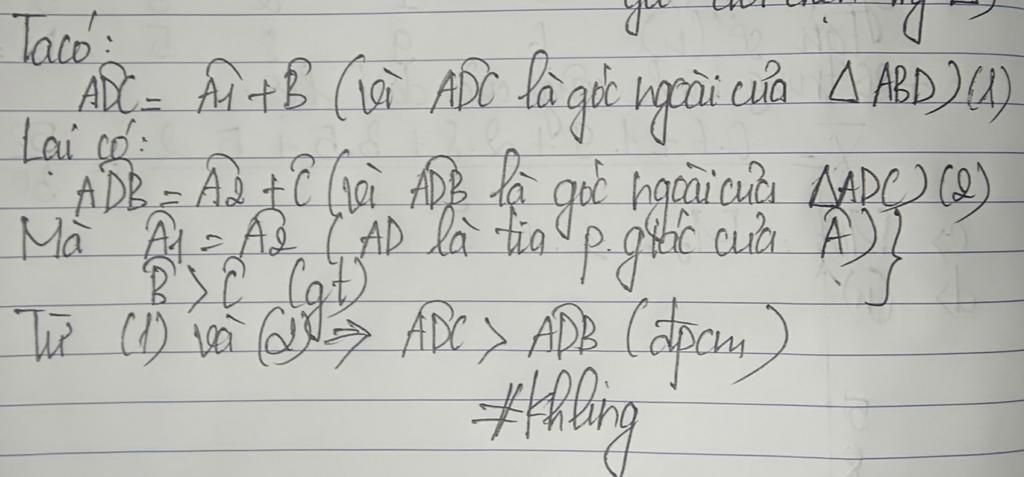 Ta có:
ADC = A1 + B (vì ADC là góc ngoài của Δ ABD) (1)
Lại có:
ADB = A2 + C (vì ADB là góc ngoài của ΔADC) (2)
Mà A1 = A2 (AD là tia p.giác của A) }
B > C (gt)
Từ (1) và (2) ⇒ ADC > ADB (đpcm)